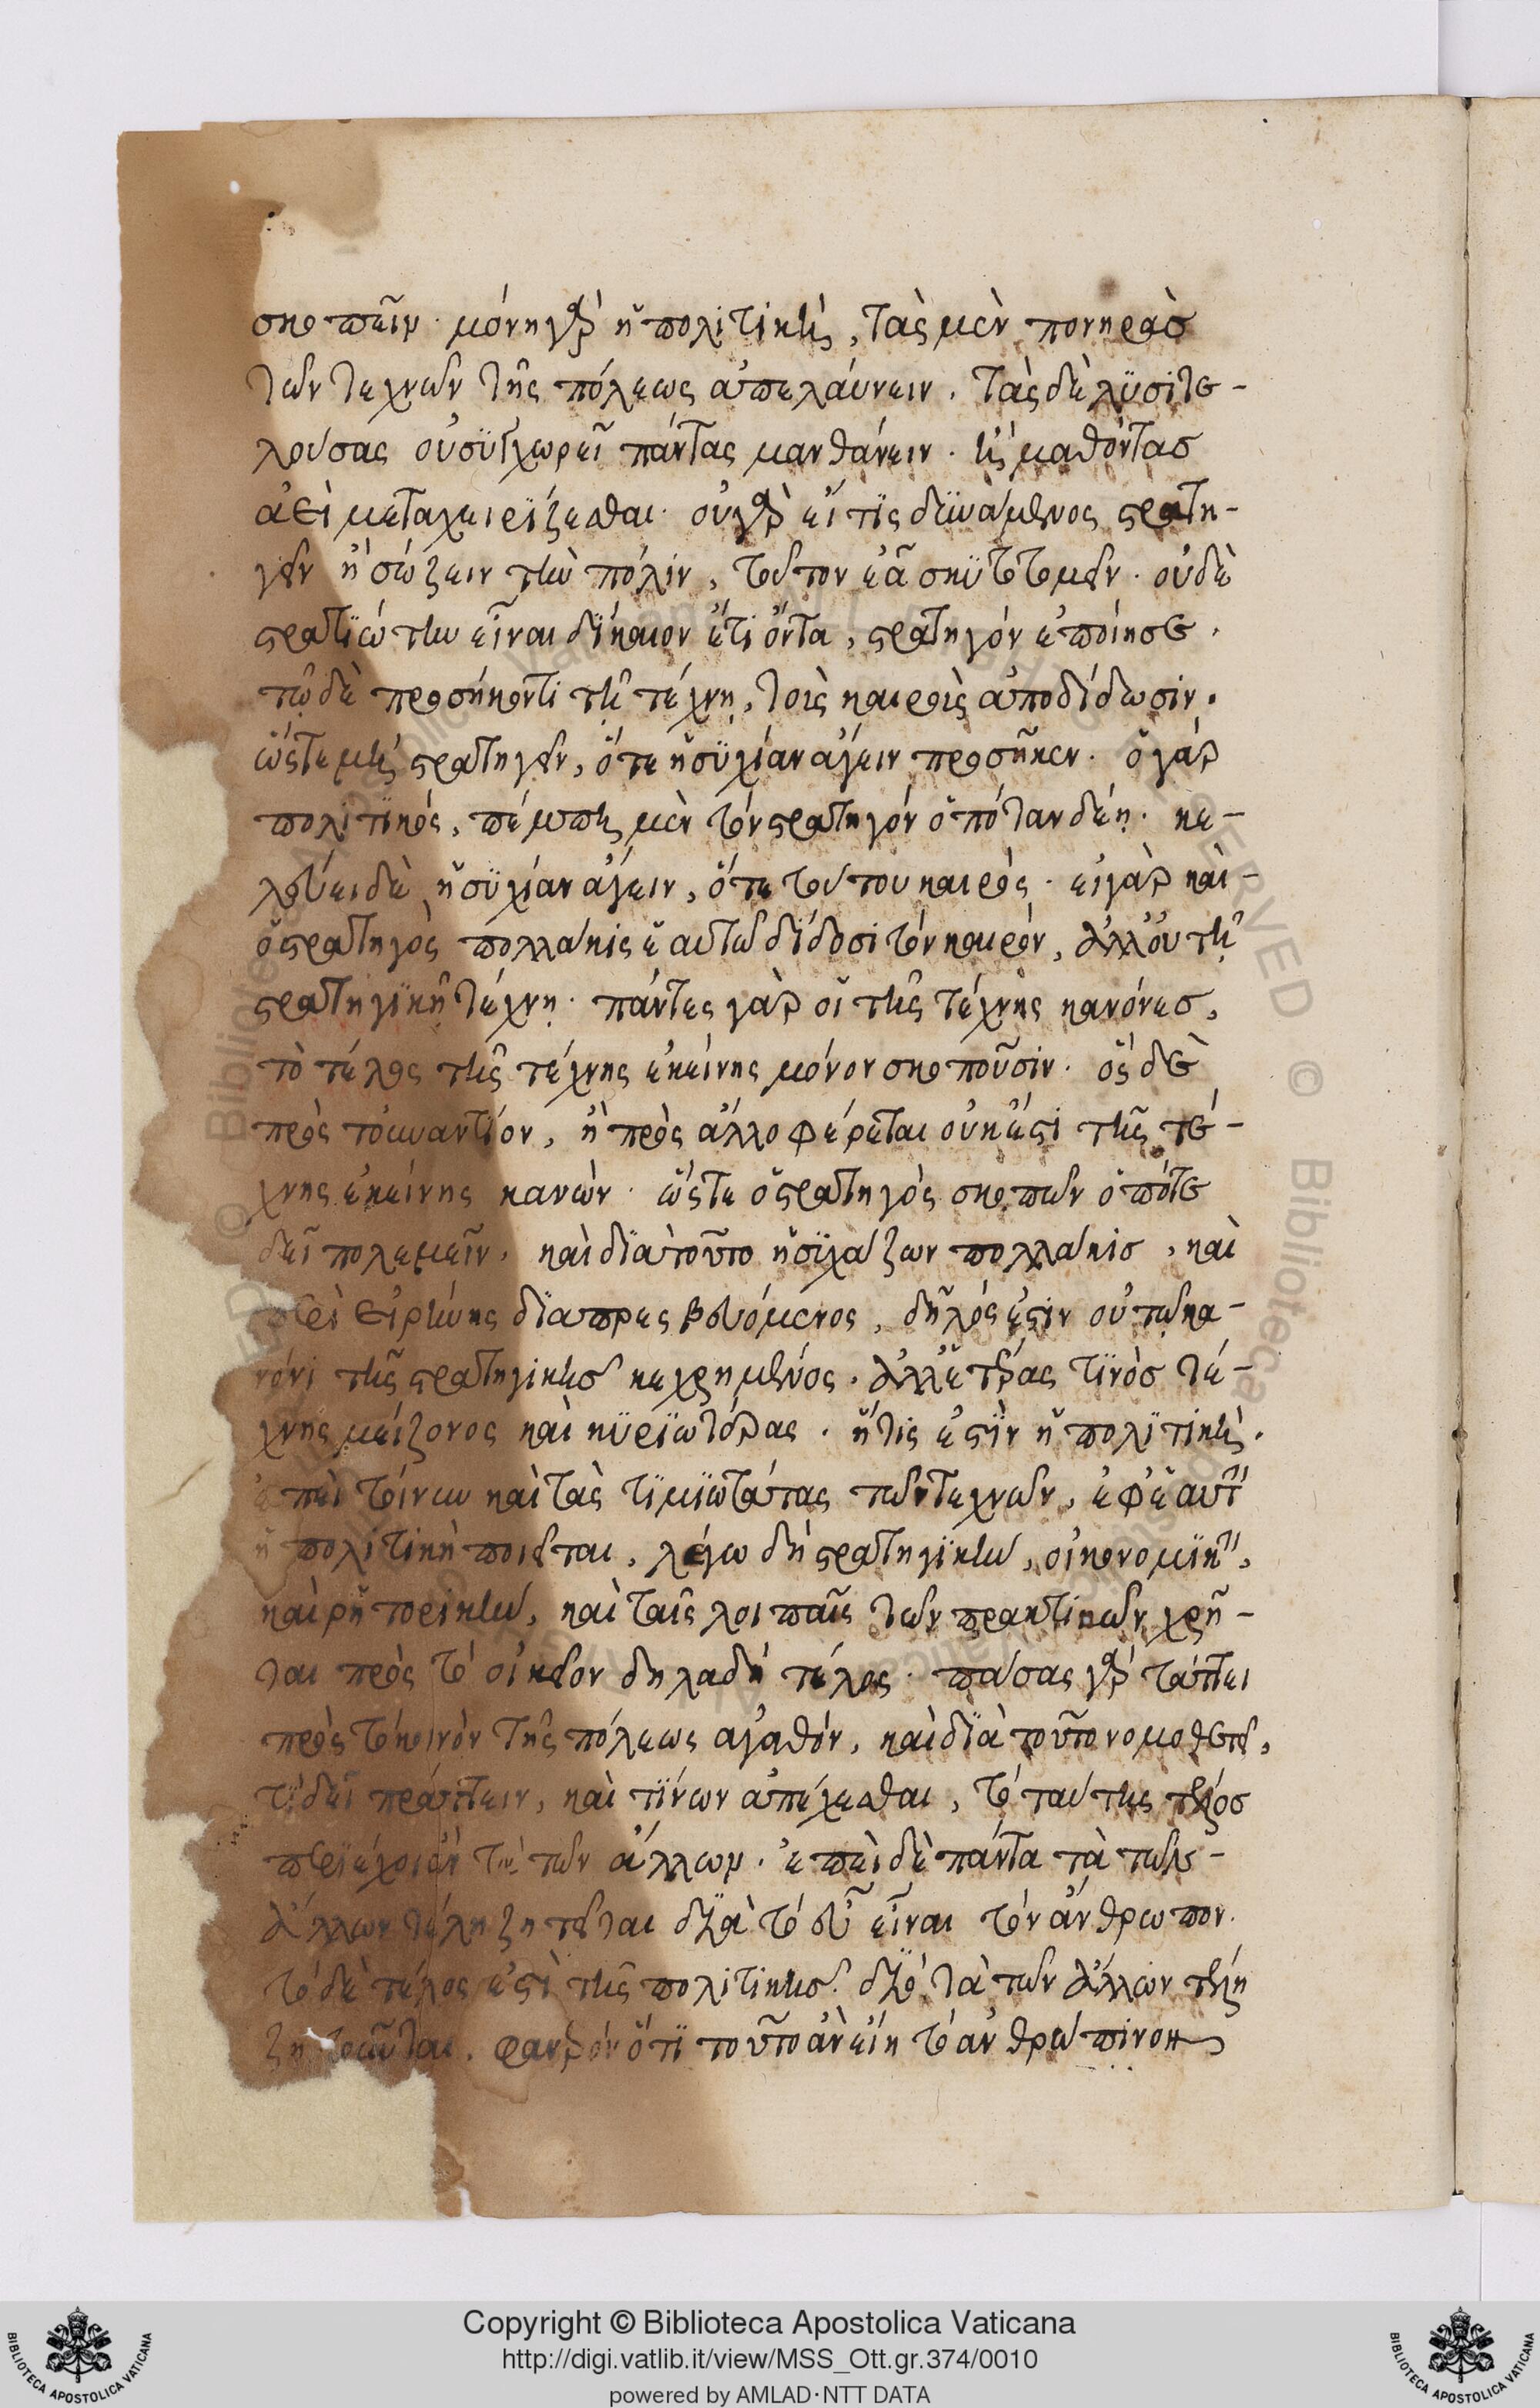 σκοπεῖν. μόνη γὰρ ἡ πολιτικὴ, τὰς μὲν πονηρὰσ
τῶν τεχνῶν τῆς πόλεως ἀπελαύνειν. τὰς δὲ λϋσιτε-
λούσας οὐ συγχωρεῖ πάντας μανθάνειν. ἢ μαθόντασ
ἀεὶ μεταχειρίζεσθαι. οὐ γὰρ εἴ τϊς δϋνάμενος στρατη-
γεῖν ἢ σώζειν τὴν πόλιν, τοῦτον ἐᾶ σκϋτοτομεῖν. οὐδὲ
στρατϊώτην εἶναι δίκαιον ἔτι ὄντα, στρατηγόν ἐποίησε.
τῷ δὲ προσήκοντι τῇ τέχνῃ, τοῖς καιροῖς ἀποδίδωσιν.
ὥστε μὴ στρατηγεῖν, ὅτε ἡσϋχίαν ἄγειν προσῆκεν. ὁ γάρ
πολιτϊκός, πέμπει μὲν τὸν στρατηγόν ὁπόταν δέῃ. κε-
λεύει δὲ ἡσϋχίαν ἄγειν, ὅτε τούτου καιρὸς. εἰ γὰρ καὶ-
ὁ στρατηγὸς πολλάκις ἑαυτῷ δίδοσι τὸν καιρόν, ἀλλ' οὐ τῇ
στρατηγϊκῇ τέχνῃ. πάντες γὰρ οἱ τῆς τέχνης κανόνεσ,
τὸ τέλος τῆς τέχνης ἐκείνης μόνον σκοποῦσιν. ὃς δὲ
πρὸς τοὐναντίον, ἢ πρὸς ἄλλο φέρεται οὐκ ἔστι τῆς τέ-
χνης ἐκείνης κανών. ὥστε ὁ στρατηγὸς σκοπῶν ὁπότε
δεῖ πολεμεῖν. καὶ δϊὰ τοῦτο ἡσϋχάζων πολλάκισ, καὶ
περὶ εἰρήνης δϊαπρεσβευόμενος, δῆλός ἐστιν οὐ τῷ κα-
νόνι τῆς στρατηγικῆσ κεχρημένος. ἀλλ' ἑτέρας τϊνὸσ τέ-
χνης μείζονος καὶ κϋρϊωτέρας. ἥτις ἐστϊν ἡ πολϊτικὴ.
ἐπεὶ τοίνυν καὶ τὰς τϊμϊωτάτας τῶν τεχνῶν, ἐφ' ἑαυτ
ἡ πολιτικὴ ποιεῖται, λέγω δὴ στρατηγϊκὴν, οἰκονομϊκὴν,
καὶ ῥητορικὴν, καὶ ταῖς λοιπαῖς τῶν πρακτικῶν χρῆ-
ται πρὸς τὸ οἰκεῖον δηλαδὴ τέλος. πάσας γὰρ τάττει
πρὸς τὸ κοινὸν τῆς πόλεως ἀγαθόν, καὶ δϊὰ τοῦτο νομοθετεῖ,
τϊ δεῖ πράττειν, καὶ τϊνων ἀπέχεσθαι, τὸ ταύτης τέλοσ
περιέχοι ἂν τὰ τῶν ἄλλων. ἐπεὶ δὲ πάντα τὰ τῶν-
ἄλλων τέλη ζητεῖται δϊὰ τὸ εὖ εἶναι τὸν ἄνθρωπον.
τὸ δὲ τέλος ἐστὶ τῆς πολιτικῆσ. δϊ' ὃ τὰ τῶν ἄλλων τέλη
ζητοῦνται. φανερόν ὅτϊ τοῦτο ἂν εἴη τὸ ἀνθρώπινον